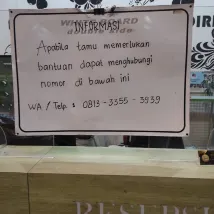 WHITEBOARD
double side
INFORMASI
Apabila tamu memerlukan
bantuan dapat menghubungi
nomor di bawah ini
WA / Telp : 0813-3355-3939